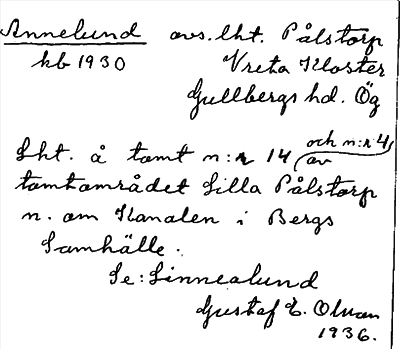 Annelund avs. lht. Pålstorp
kb 1930 Vreta Kloster
Gullbergs hd. Ög
och n:r 4,
Lht. å tomt n:r 14 av
tomtområdet Lilla Pålstorp
n. om Kanalen i Bergs
Samhälle.
Se: Linnealund
Gustaf E. Olson
1936.